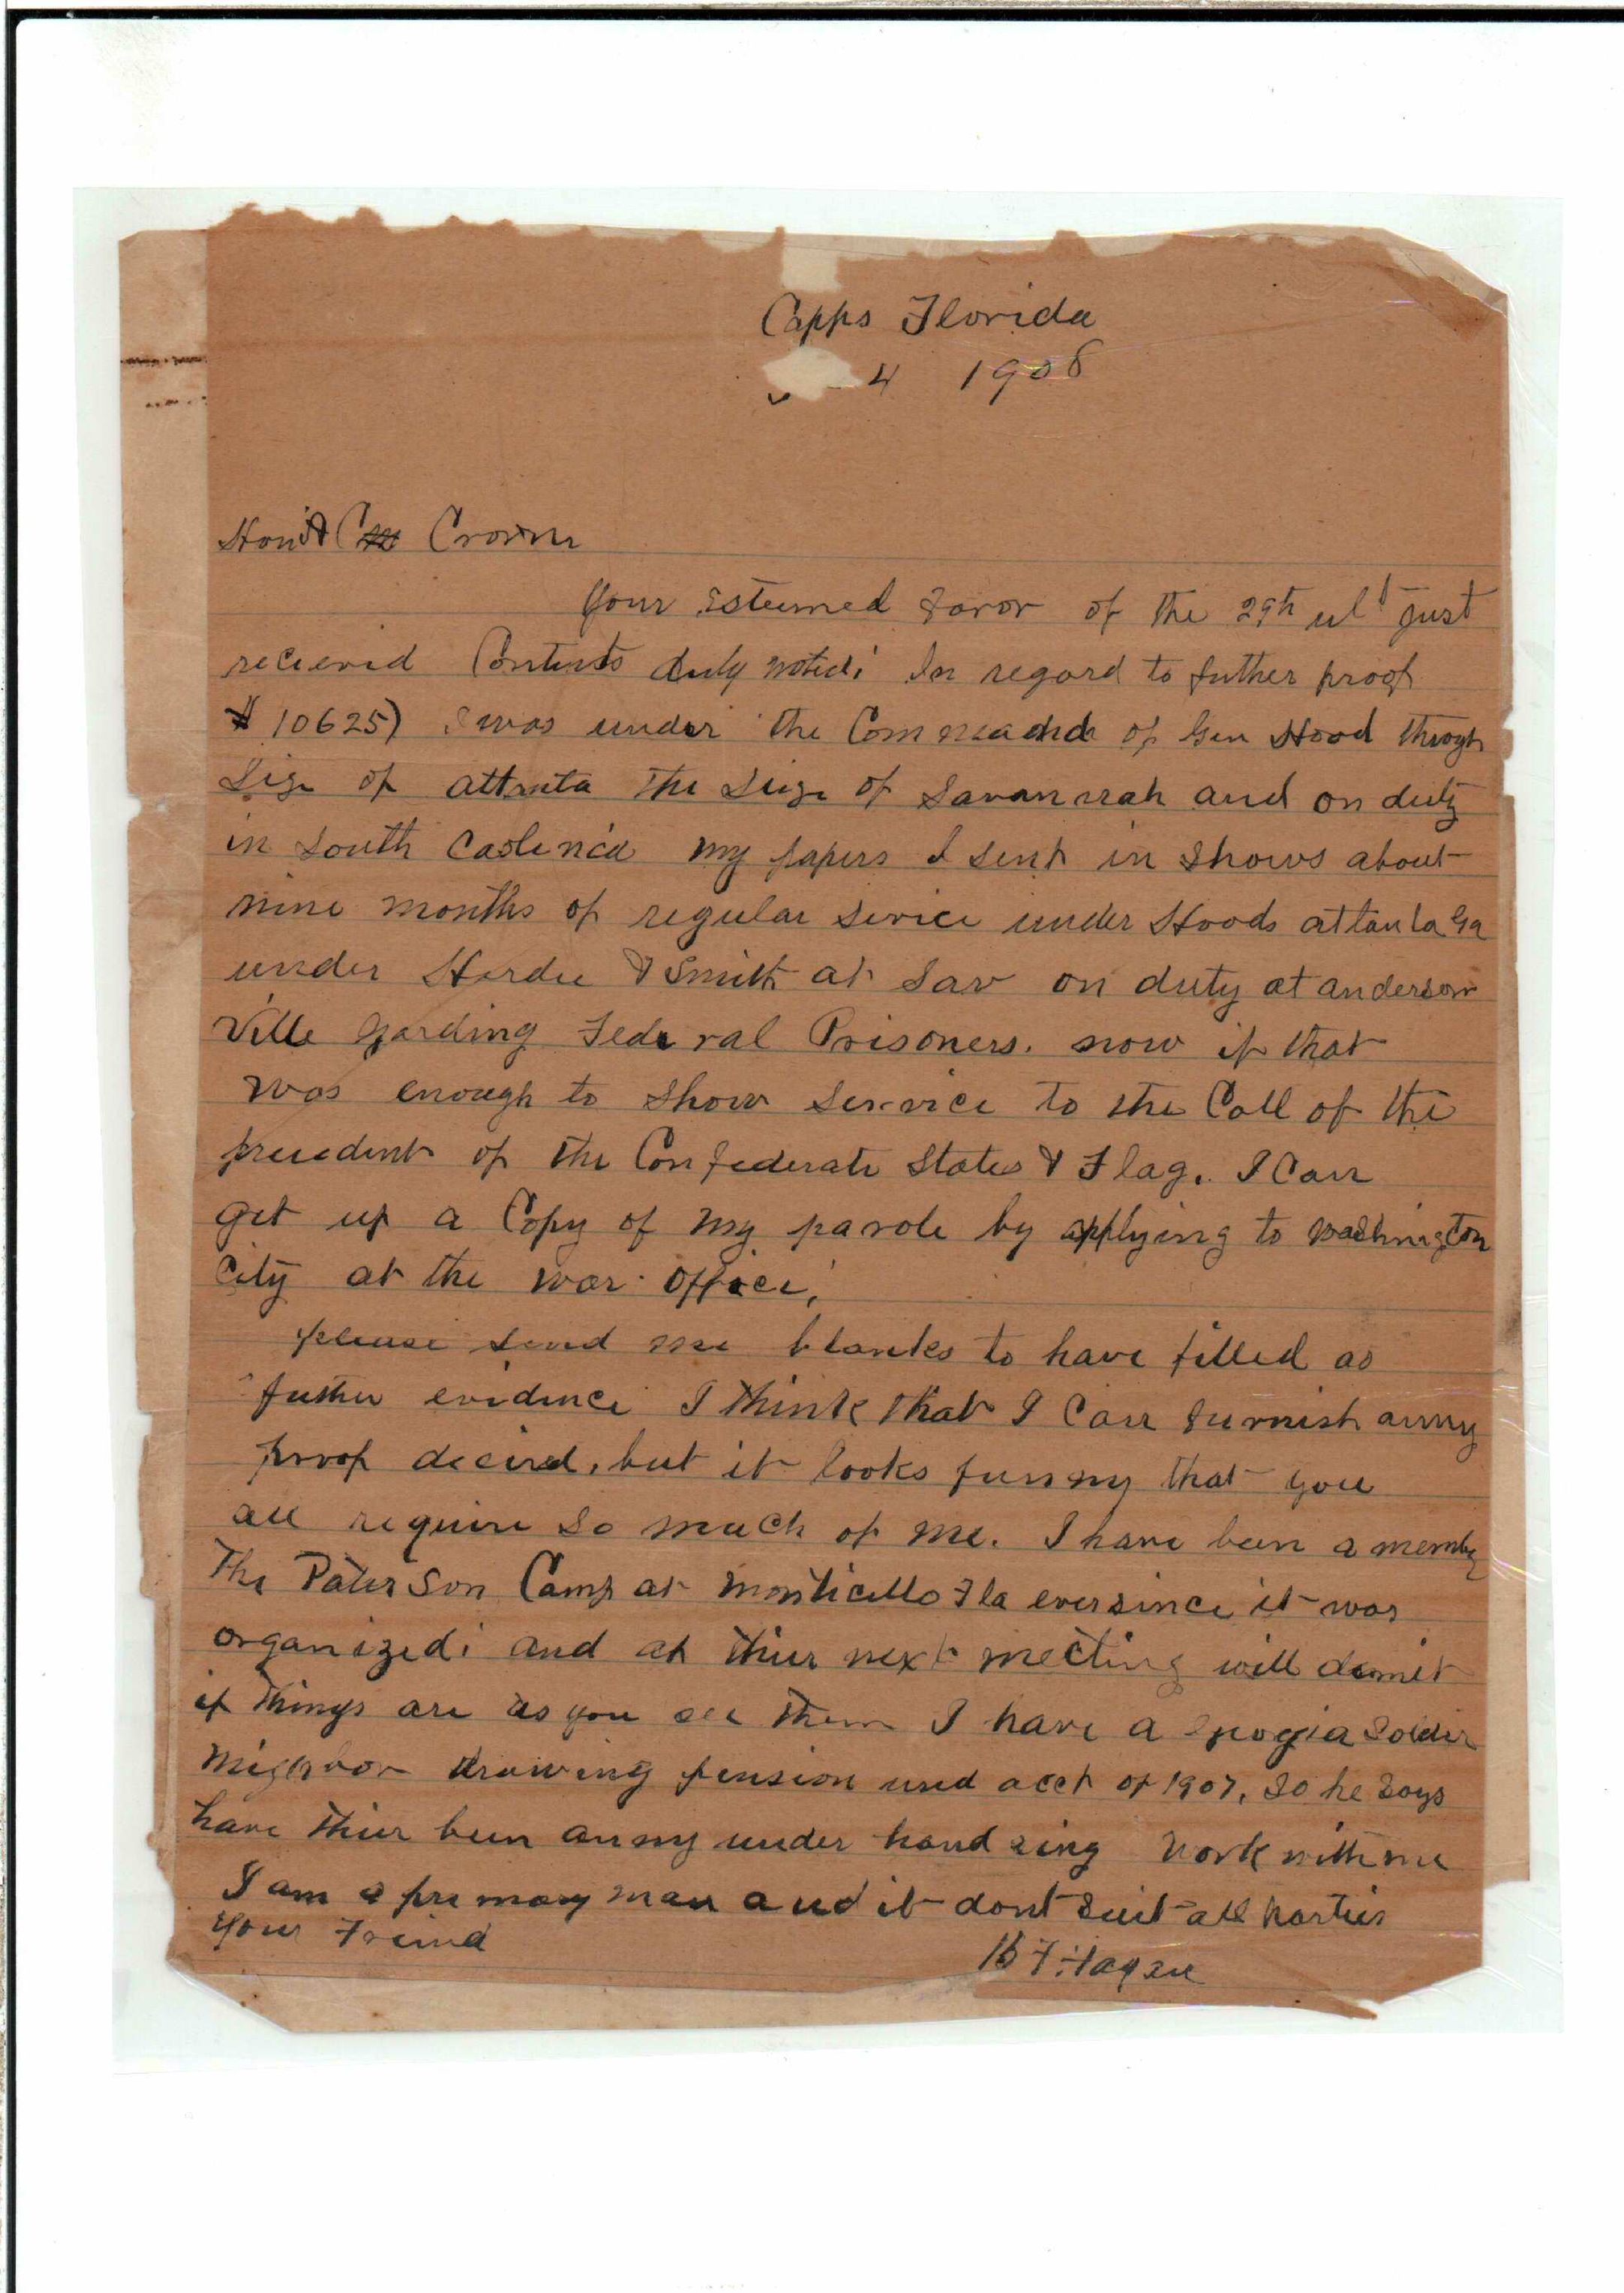 Capps Florida
4 1908
Hon A C Croom
Your Esteemed Favor of the 29th ult just
recievid Contents duly noted; In regard to futher proof
# 10625) I was under the Commeadnd of Gen Hood throgh
Sige of attanta The Seige of Savannah and on duty
in South Caolinia my papers I sent in Shows about
nine months of regular Service under Hoods attanta Ga
under Hardee & Smith at Sav on duty at anderson
Ville Garding Federal Prisoners. now if that
was enough to Show Service to the Call of the
precedent of the Confederate States & Flag. I Can
get up a Copy of my parole by applying to Washington
City at the war office,
please send me blanks to have filled as
futher evidence I think that I Can furnish anny
proof decird, but it looks funny that you
all require So much of me. I have been a memby
The Paterson Camp at Monticello Fla ever since it was
organized; and at thier next meeting will demit
if things are as you see them I have a Soldir
Neighbor drawing pension und acct of 1907, So he Says
have thier been anny under hand work with me
I am a primary man and it dont Suit all parties
Your Freind
B F Hagan